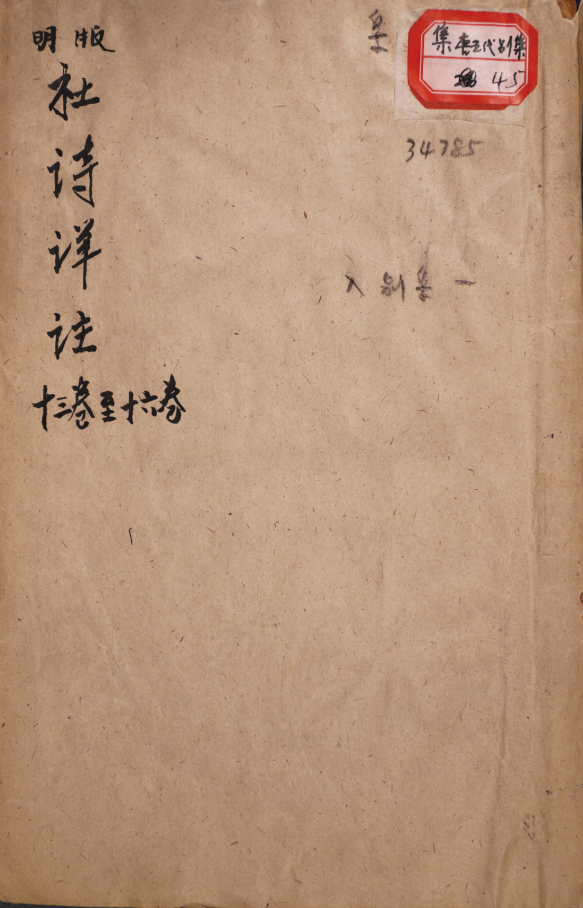 明版
杜诗详注
十三卷至十六卷
集
集 唐五代别集
45
34785
入别集一